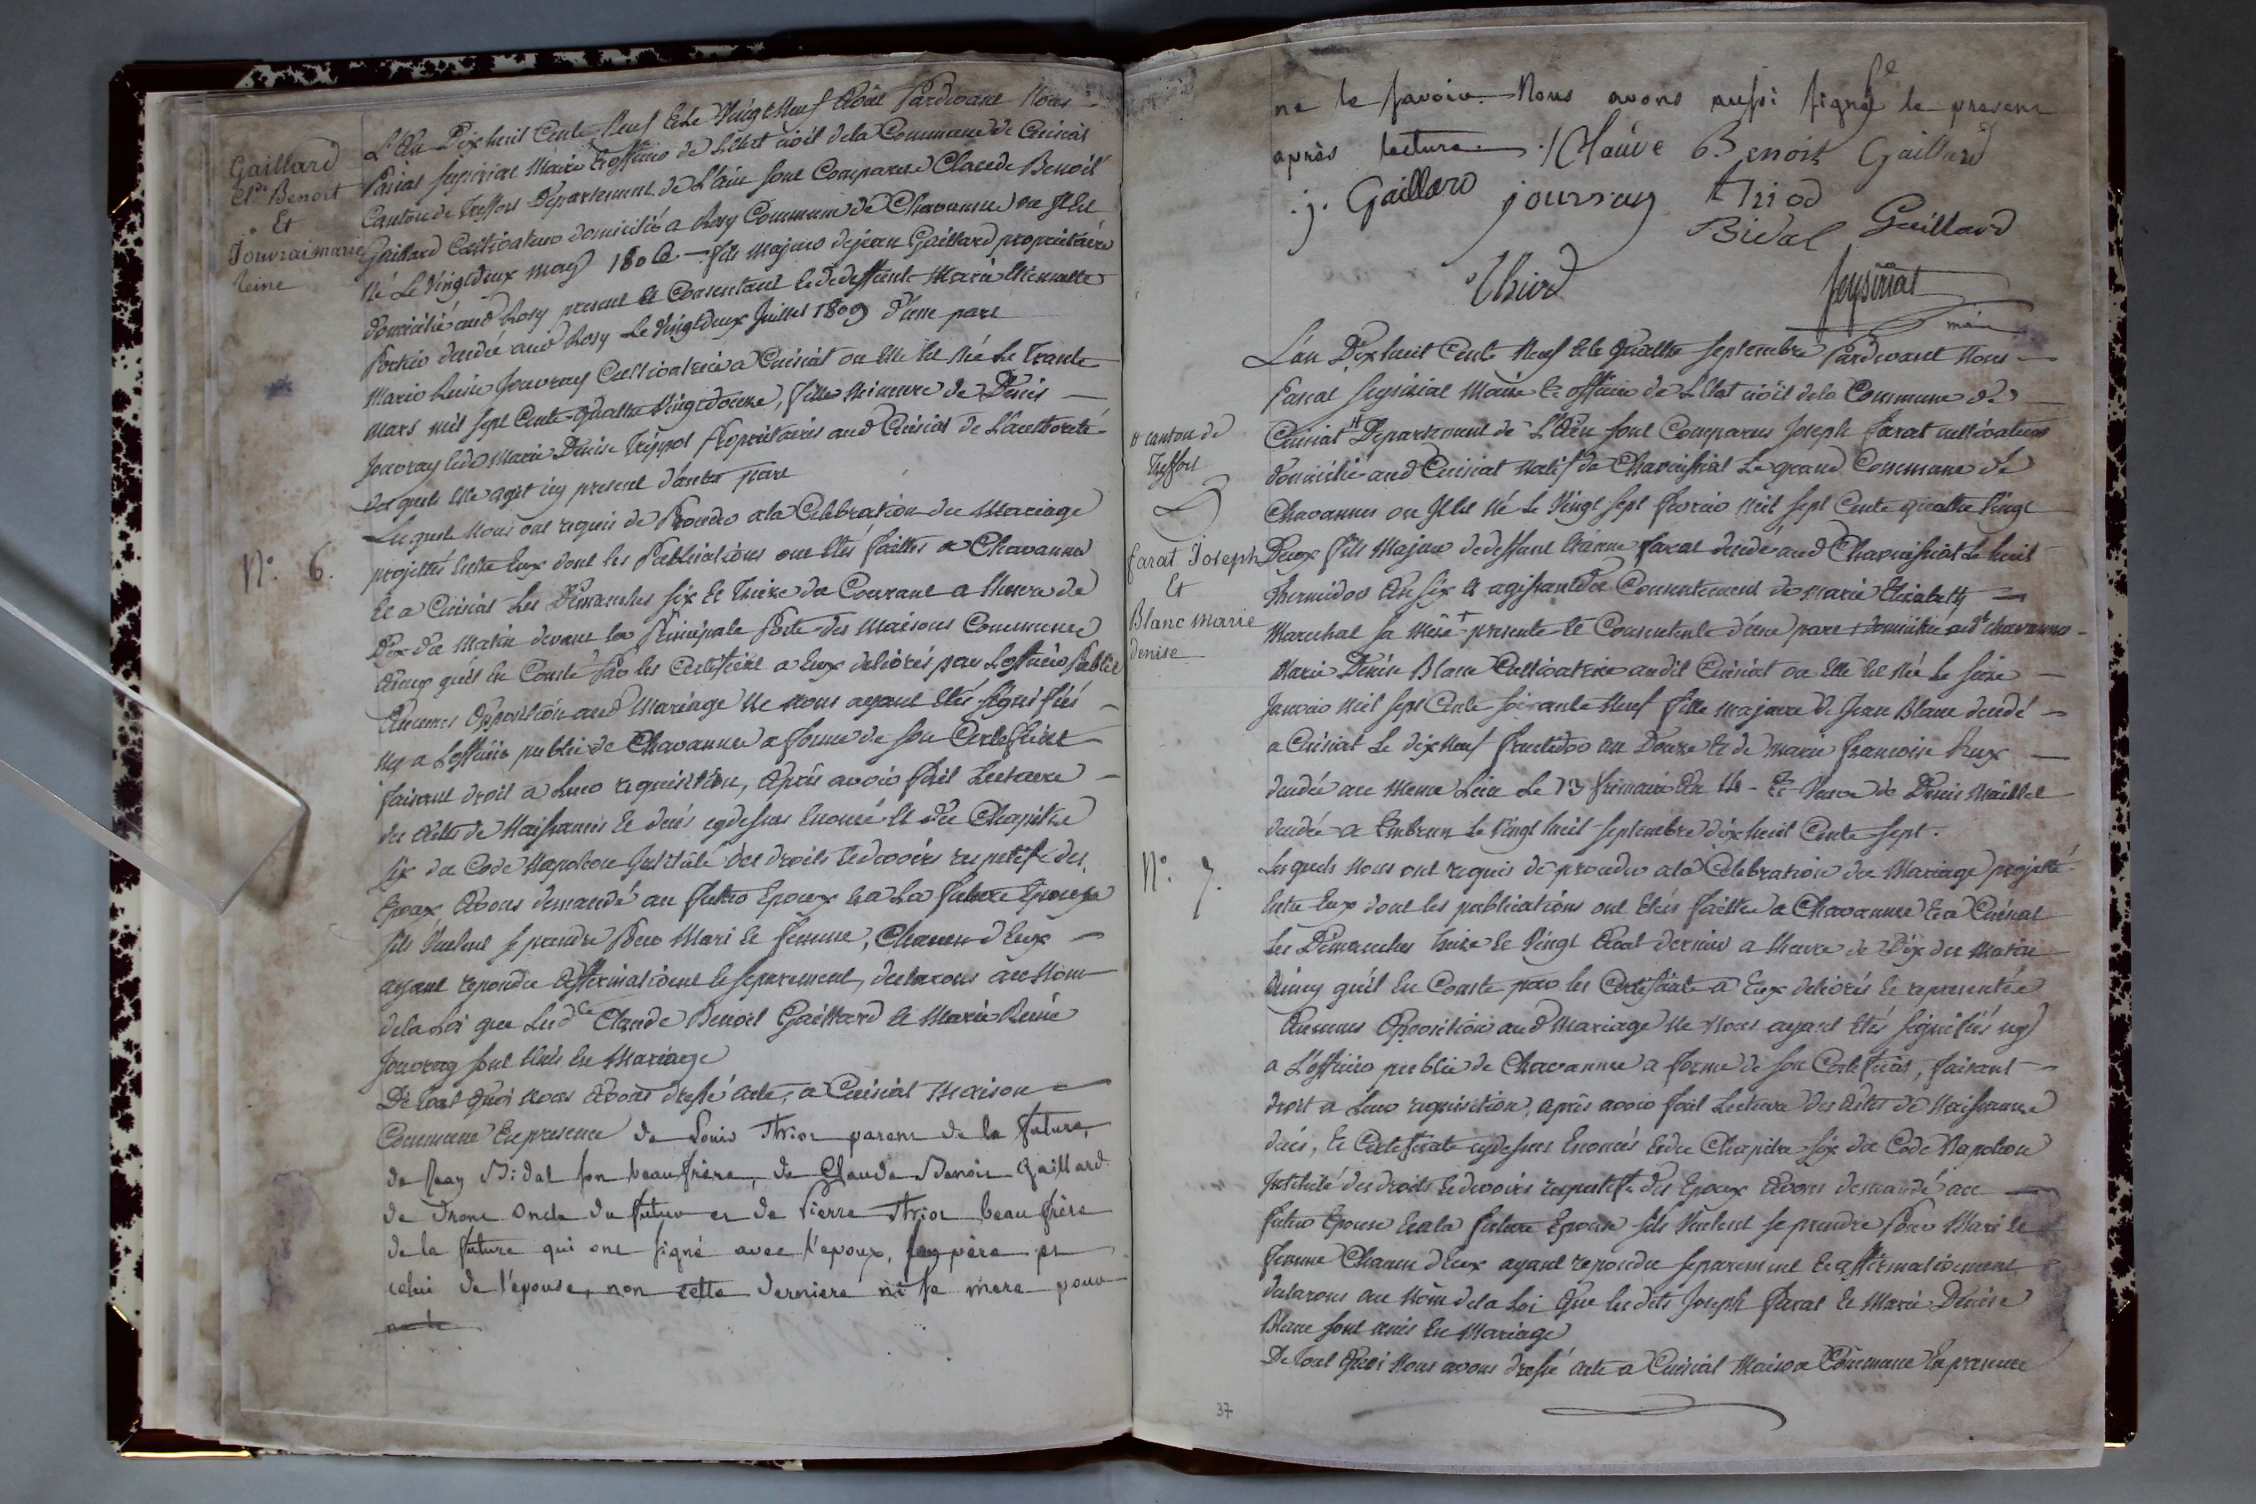 Gaillard
Cde Benoit
Et
Jouvrai marie
Reine
L'An Dix huit Cente Neuf Et Le Vingt Neuf Août Pardevant Nous
Pascal Seysiriat Maire Et officier de L'Etat civil dela Commune de Cuisiat
Canton de Treffort Departement de L'Ain sont Comparus Claude Benoit
Gaillard Cultivateur domicilié a Rosy Commune de Chavannes ou Il Est
Né Le Vingt deux may 178 fils Majeur de jean Gaillard propriétaire
domicilié aud Rosy present Et Consentant Et de deffunte Marie
decedée aud Rosy Le Vingt deux Juillet 1809 d'une part
Marie Reine Jouvray Cultivatrice a Cuisiat ou Elle Est Née Le Trante
mars mil Sept Cente quattre Vingt douze, fille Mineure de Denis
Jouvray Et de Marie Denise Propriétaires aud Cuisiat de L'authorité
des quels Elle agit icy present d'autre part
Lesquels Nous ont requis de Proceder ala Celebration du Mariage
N.° 6.
projettés Entre Eux dont les Publications ont Etés faittes a Chavannes
Et a Cuisiat Les Dimanches six Et Treize du Courant a l'heure de
Dix du Matin devant la Principale Porte des Maisons Communes
Ainsy qu'il En Conste Par les Certificat a Eux delivrés par L'officier Public
Aucunes Opposition aud Mariage Ne Nous ayant Etés Signiffiés
Ny a L'officier public de Chavannes a forme de son Certificat
faisant droit a Leur requisition, Après avoir fait Lecture
des Actes de Naissances Et deces cy dessus Enoncé Et du Chapitre
Six du Code Napoleon Intitulé des droits Et devoirs respectifs des
Epoux Avons demandé au futur Epoux Et a La future Epouse
s'ils Veulent se prendre Pour Mari Et femme, Chacun d'Eux
ayant repondu Affirmativement Et separement, declarons au Nom
dela Loi que Led Claude Benoit Gaillard Et Marie Reine
Jouvray sont Unis En Mariage
De tout Quoi Nous Avons dressé Acte, a Cuisiat Maison
Commune En presence de Louis Thior parent de la future,
de Jean Bidal son beaufrère, de Claude Benoit Gaillard
de Drom oncle du futur et de Pierre Thior beaufrère
de la future qui ont signé avec l'epoux, son père et
celui de l'épouse, non cette derniere ni sa mere pour
ne le
ne le savoir. Nous avons aussi signé le present
après lecture. Claude Benoit Gaillard
j. Gaillard jouvray thiod
Bidal Gaillard
Thiod Seysiriat
maire
L'an Dix huit Cente Neuf Et le Quattre Septembre Pardevant Nous
Pascal Seysiriat Maire Et officier de L'Etat civil dela Commune de
Cuisiat # Departement de L'Ain sont Comparus Joseph Farat cultivateur
# canton de
Treffort
domicilié aud Cuisiat Natif de Chavuissiat Le grand Commune de
Chavannes ou Il Est Né Le Vingt Sept fevrier Mil Sept Cente quattre Vingt
farat Joseph
Et
Blanc Marie
denise
Deux fils Majeur de deffunt Farat decedé aud Chavuissiat Le huit
Thermidor An Six Et agissant du Consentement de Marie Elisabeth
Marechal sa Mère + presente Et Consentente d'une part + domiciliée audt chavannes
Marie Denise Blanc Cultivatrice audit Cuisiat ou Elle Est Née Le seize
Janvier Mil Sept Cente soixante Neuf fille Majeure de Jean Blanc decedé
a Cuisiat Le dix Neuf fructidor an Douze Et de Marie francoise Rux
decedée au Meme Lieu Le 13 frimaire An 14 - Et Veuve de Denis Maillet
decedé a Embrun Le Vingt huit Septembre dix huit Cente Sept.
N.° 7.
Lesquels Nous ont requis de proceder ala Celebration du Mariage projetté
Entre Eux dont les publications ont Etés faittes a Chavannes Et a Cuisiat
Les Dimanches treize Et Vingt Août dernier a l'heure de Dix du Matin
Ainsy qu'il En Conste par les Certificats a Eux delivrés Et representés
Aucunes Opposition aud Mariage Ne Nous ayant Etés Signifiés ny
a L'officier public de Chavannes a forme de son Certificat, faisant
droit a Leur requisition, après avoir fait Lecture des Actes de Naissance
decès, Et Certificats cy dessus Enoncés Et du Chapitre Six du Code Napoleon
Intitulé des droits Et devoirs respectifs des Epoux Avons demandé au
futur Epoux Et a la future Epouse s'ils Veulent se prendre Pour Mari Et
femme Chacun d'Eux ayant repondu separement Et affirmativement
declarons au Nom dela Loi Que les dits Joseph Farat Et Marie Denise
Blanc sont unis En Mariage
De tout Quoi Nous avons dressé Acte a Cuisiat Maison Commune En presence
37